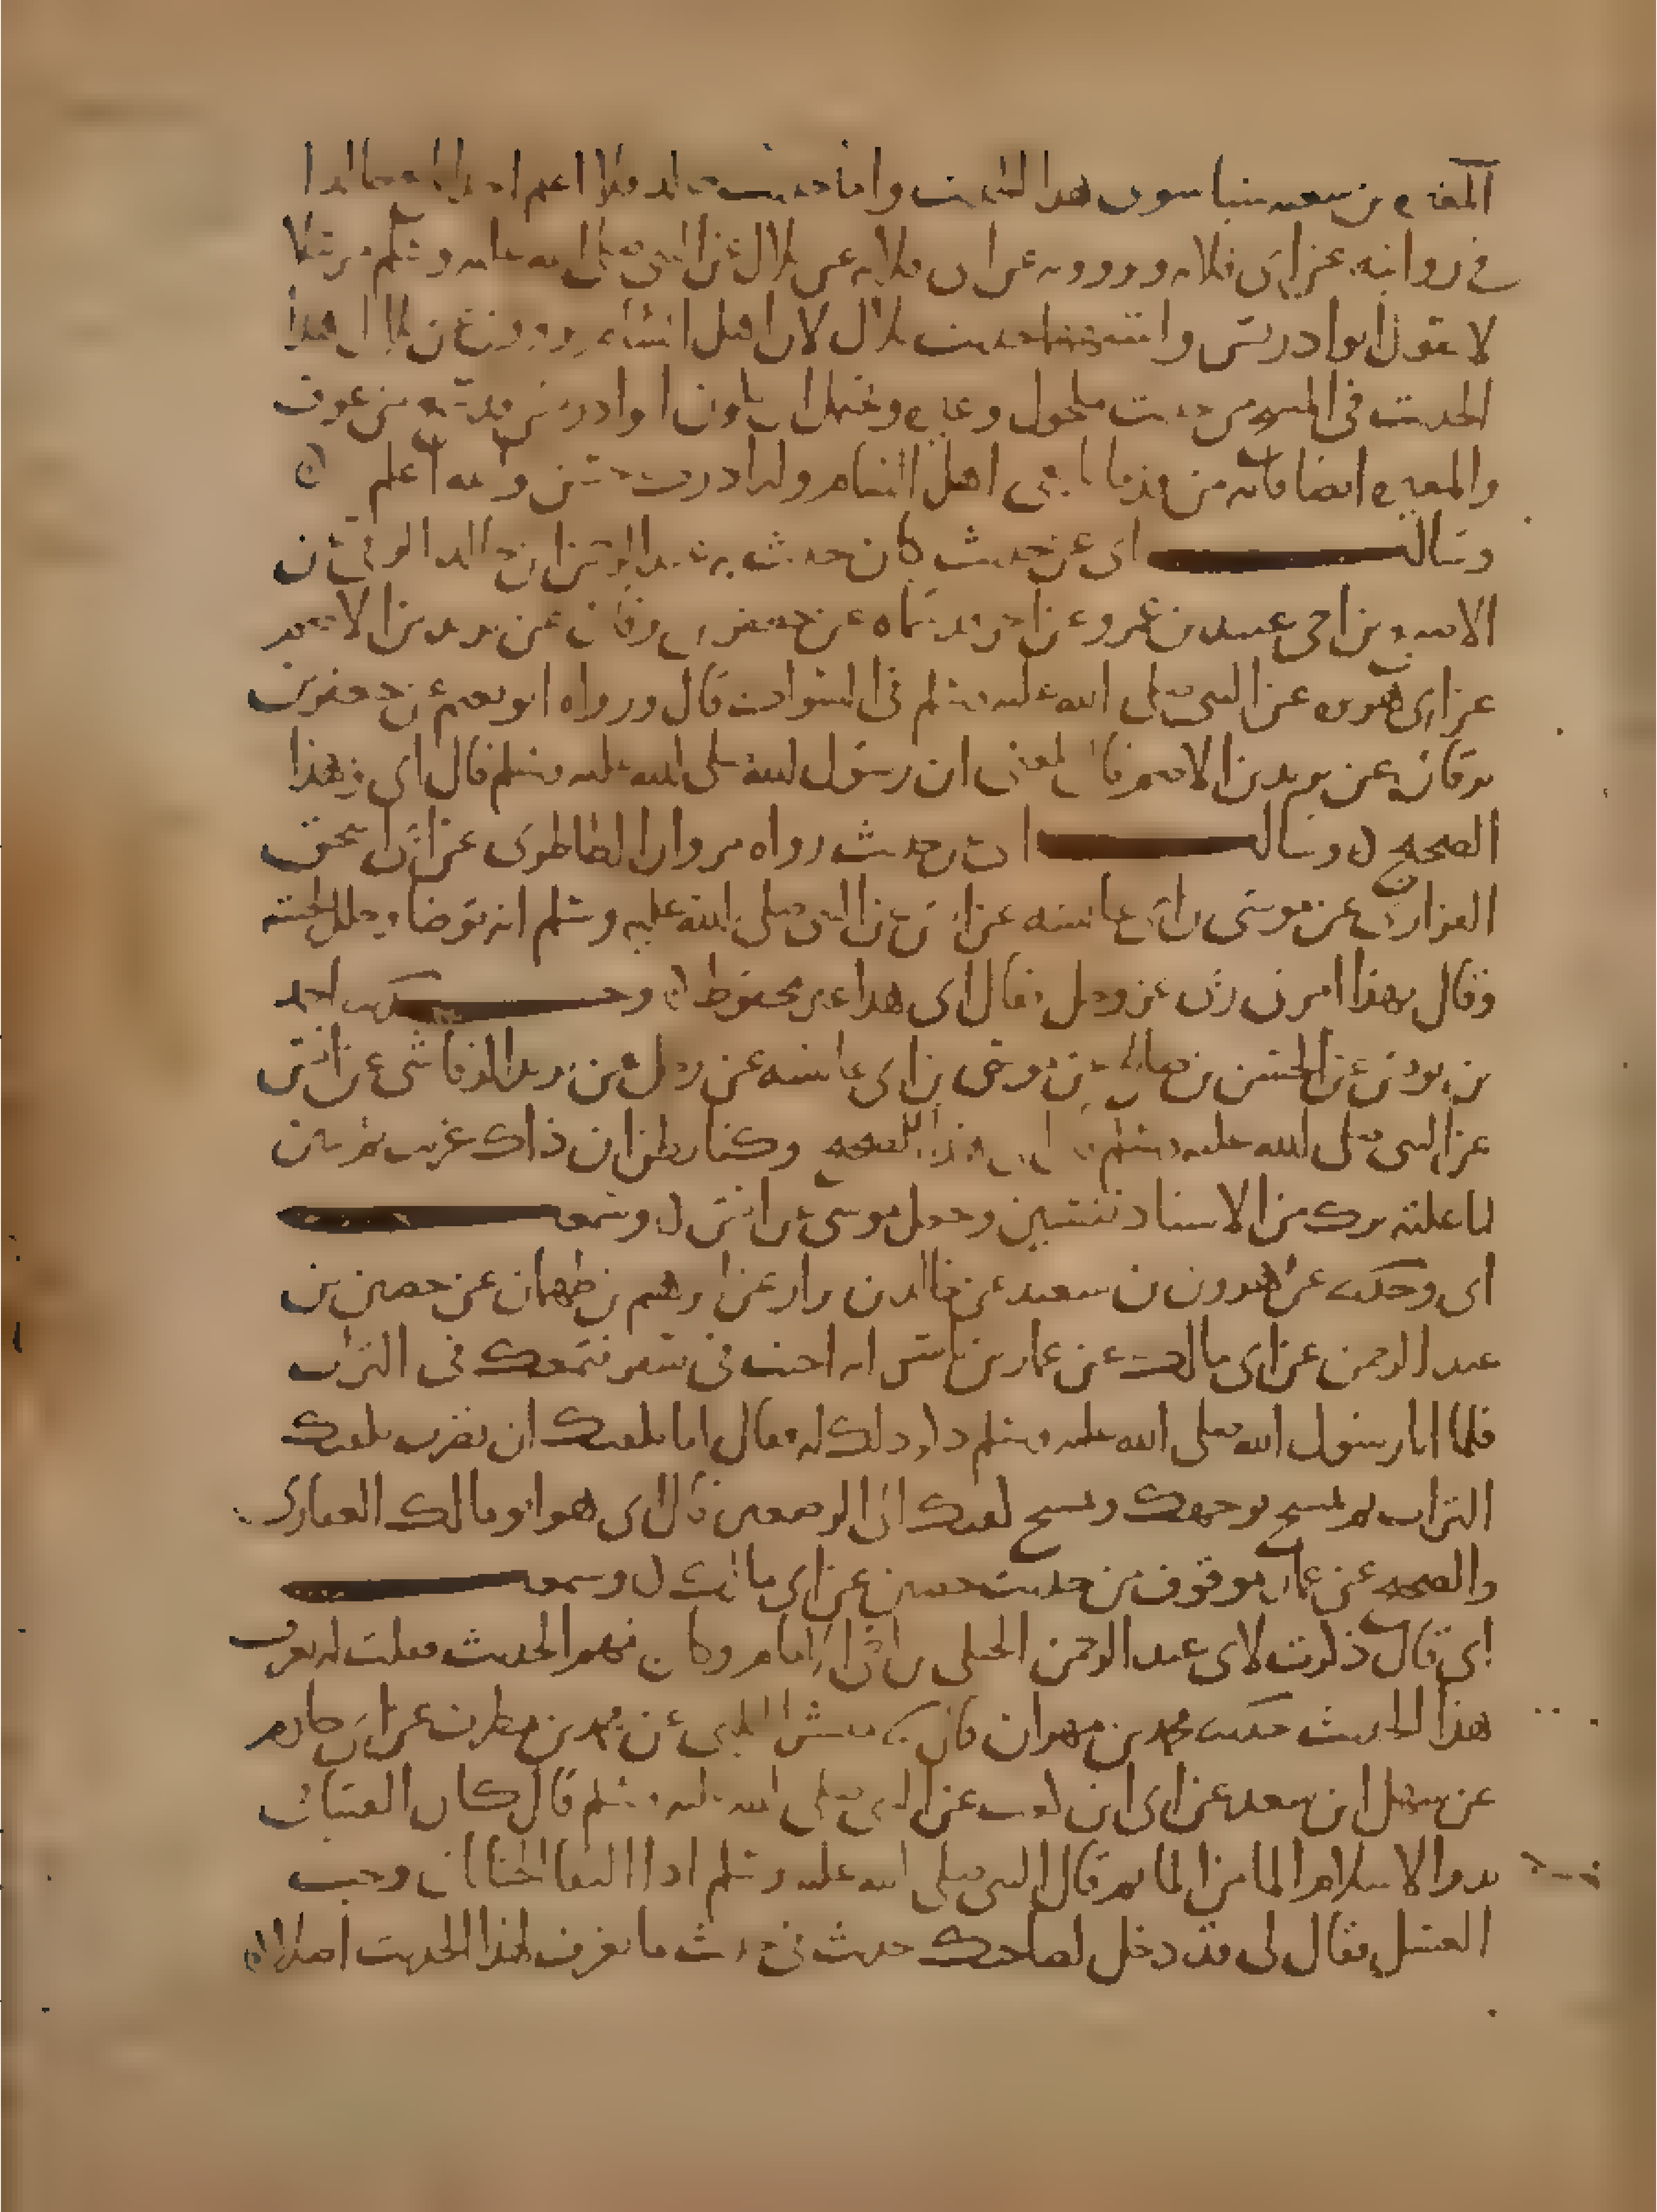 المغيرة بن شعبة شيئا سوى هذا الحديث واما حديث خالد فلا اعلم احدا تابع خالدا
في روايته عن ابي قلابة ويروونه عن ابي قلابة عن بلال عن النبي صلى الله عليه وسلم مرسلا
لا يقول ابو ادريس واشبه حديث بلال لان اهل الشام يروون عن بلال هذا
الحديث في المسح من حديث مكحول وغيره ويحتمل ان يكون ابو ادريس قد سمع من عوف
والمغيرة ايضا فانه من قدماء تابعي اهل الشام وله ادراك حسن والله اعلم
وسالت ابي عن حديث كان حدث به عبد الرحمن بن خالد الرقي عن
الاصبغ بن اخي عبيد بن عمرو عن اخر قد سماه عن جعفر بن برقان عن يزيد بن الاصم
عن ابي هريرة عن النبي صلى الله عليه وسلم في السواك قال ورواه ابو نعيم عن جعفر بن
برقان عن يزيد بن الاصم قال بلغني ان رسول الله صلى الله عليه وسلم قال ابي وهذا
الصحيح وسالت ابي عن حديث رواه مروان الطاطري عن ابي اسحق
الفزاري عن موسى بن ابي عايشة عن انس عن النبي صلى الله عليه وسلم انه توضا وخلل لحيته
وقال بهذا امرني ربي عز وجل فقال ابي هذا غير محفوظ وحدثنا احمد
بن يونس عن الحسن بن صالح عن موسى بن ابي عايشة عن رجل عن يزيد الرقاشي عن انس
عن النبي صلى الله عليه وسلم قال ابي وهذا الصحيح وكنا نظن ان ذاك غريب ثم تبين
لنا علته ترك من الاسناد نفسين وجعل موسى عن انس وسمعت
ابي وحدثنا عن هرون بن سعيد عن خالد بن نزار عن ابرهيم بن طهمان عن حصين بن
عبد الرحمن عن ابي مالك عن عمار بن ياسر انه اجنب في سفر فتمعك في التراب
فلما اتا رسول الله صلى الله عليه وسلم ذكر ذلك له فقال انما يكفيك ان تضرب بكفيك
التراب ثم تمسح بوجهك وتمسح كفيك الى الرصغين قال ابي هو ابو مالك الغفاري
والصحيح عن عمار موقوف من حديث حصين عن ابي مالك وسمعت
ابي قال ذكرت لابي عبد الرحمن الحبلي وكان يفهم الحديث فقلت له تعرف
هذا الحديث حدثنا محمد بن مهران قال مبشر الحلبي عن محمد بن مطرف عن ابي حازم
عن سهل ابن سعد عن ابي ابن كعب عن النبي صلى الله عليه وسلم قال كان الفتيا في
بدو الاسلام الما من الما ثم قال النبي صلى الله عليه وسلم اذا التقا الختانان وجب
الغسل فقال لي قد دخل لصاحبك حديث في حديث ما نعرف لهذا الحديث اصلا